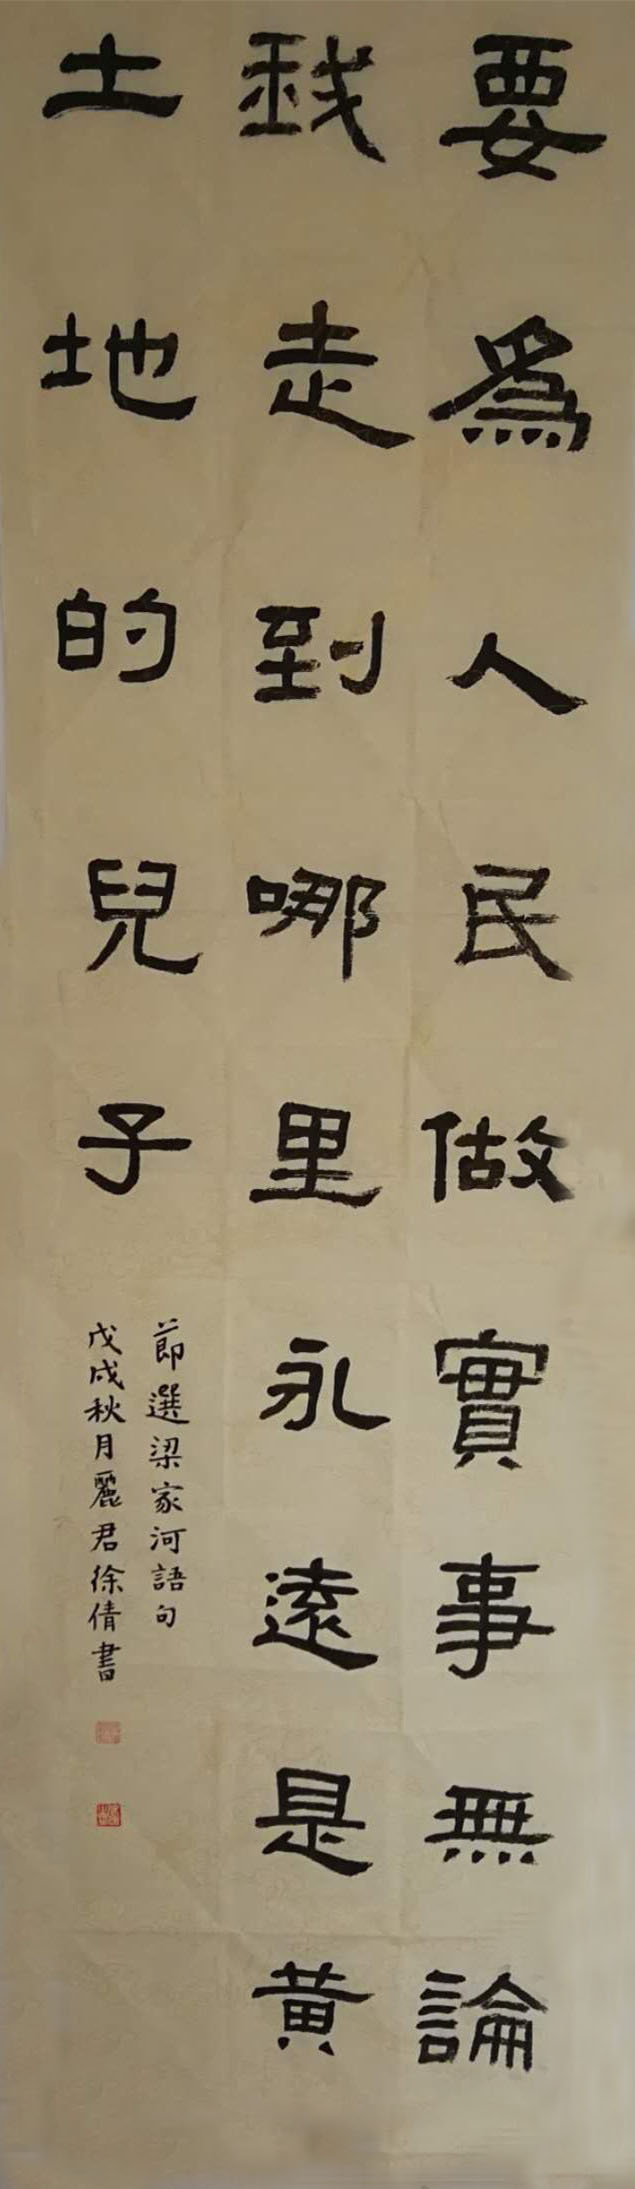 要爲人民做實事無論
我走到哪里永遠是黄
土地的兒子
節選梁家河語句
戊戌秋月麗君徐倩書